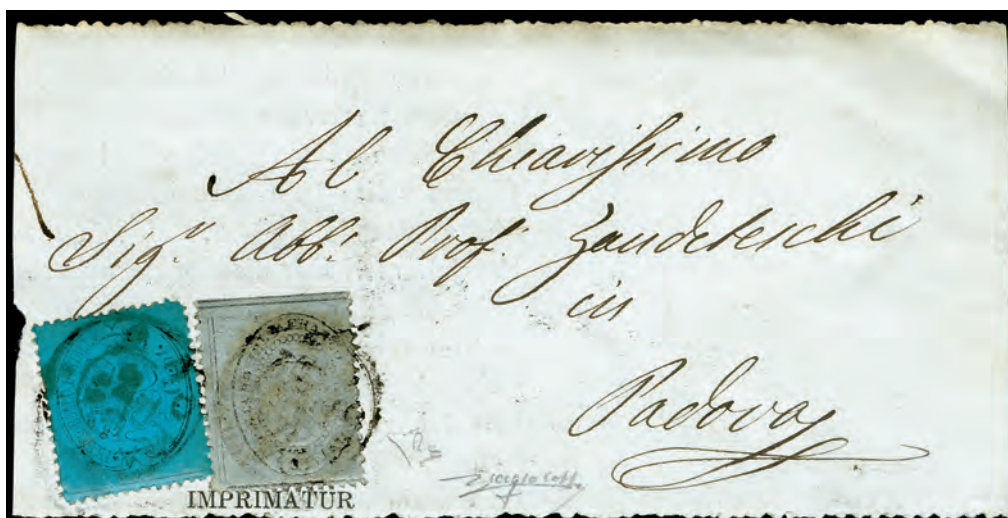 Al Chiarissimo
Sig.r Abb.e Prof. Zandeteschi
in
Padova
IMPRIMATUR